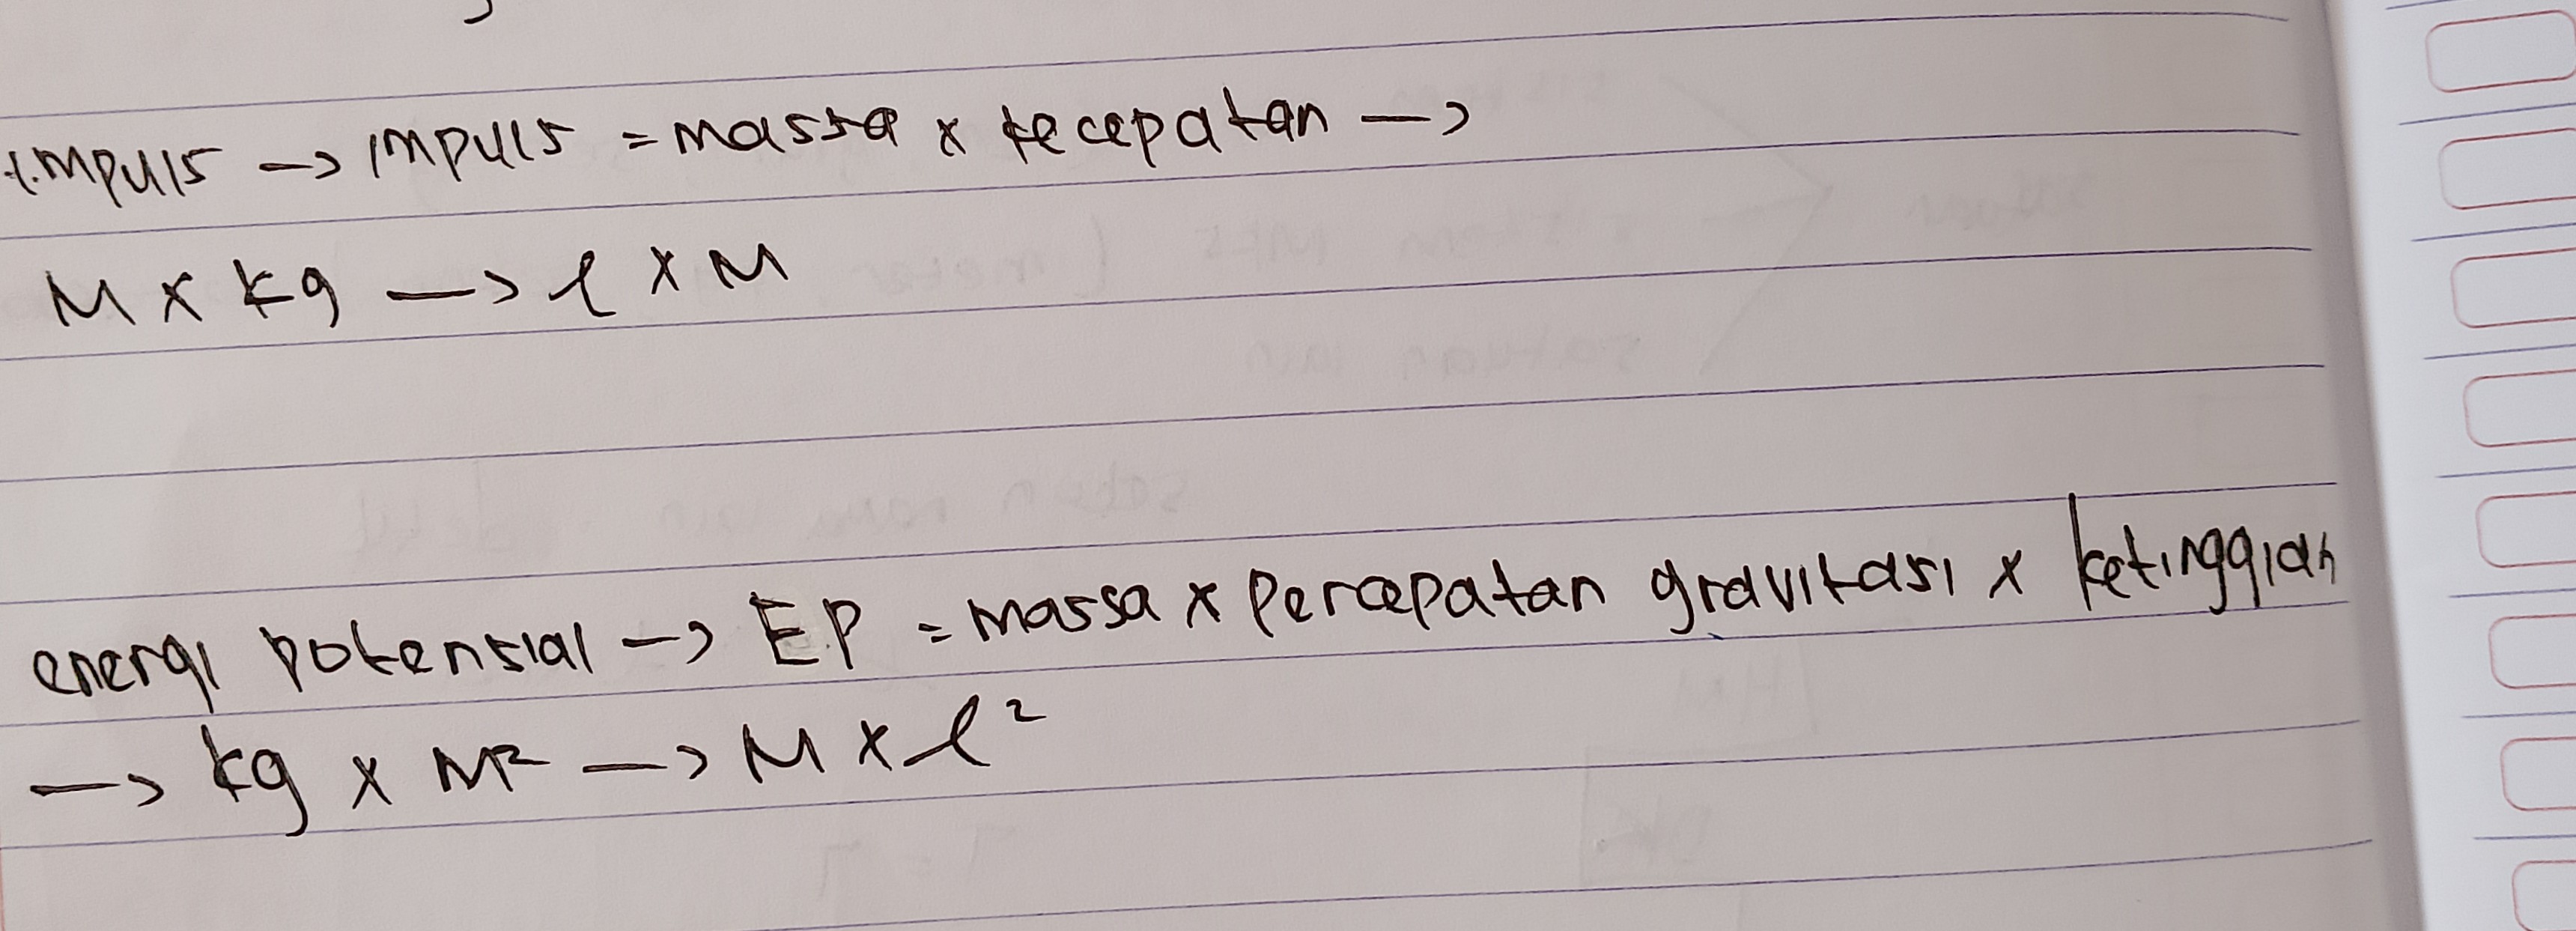 impuls -> impuls = massa x kecepatan ->
M x kg -> l x M
energi potensial -> EP = massa x percepatan gravitasi x ketinggian
-> kg x M² -> M x l²